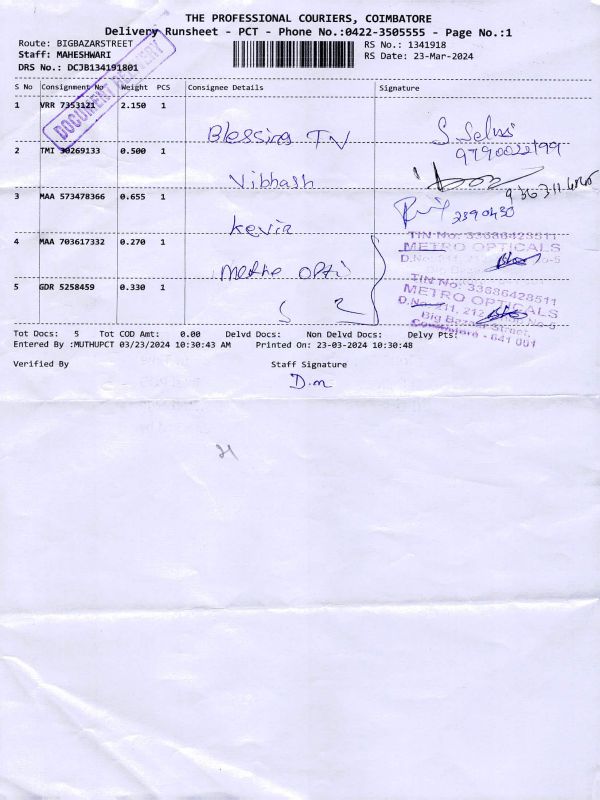 THE PROFESSIONAL COURIERS, COIMBATORE
Delivery Runsheet - PCT - Phone No.:0422-3505555 - Page No.:1
Route: BIGBAZARSTREET RS No.: 1341918
Staff: MAHESHWARI RS Date: 23-Mar-2024
DRS No.: DCJB134191801
DOCUMENT DELIVERY
S No Consignment No Weight PCS Consignee Details Signature
1 VRR 7353121 2.150 1 Blessing TV S Selvi
9790022199
2 TMI 30269133 0.500 1 Vibhash
3 MAA 573478366 0.655 1 Kevin 2390430
TIN No: 33686428511
4 MAA 703617332 0.270 1 Metro Opti METRO OPTICALS
D.No: 211, 212
TIN No: 33686428511
5 GDR 5258459 0.330 1 METRO OPTICALS
D.No: 211, 212
Big Bazaar Street,
Coimbatore - 641 001
Tot Docs: 5 Tot COD Amt: 0.00 Delvd Docs: Non Delvd Docs: Delvy Pts:
Entered By :MUTHUPCT 03/23/2024 10:30:43 AM Printed On: 23-03-2024 10:30:48
Verified By Staff Signature
D.m